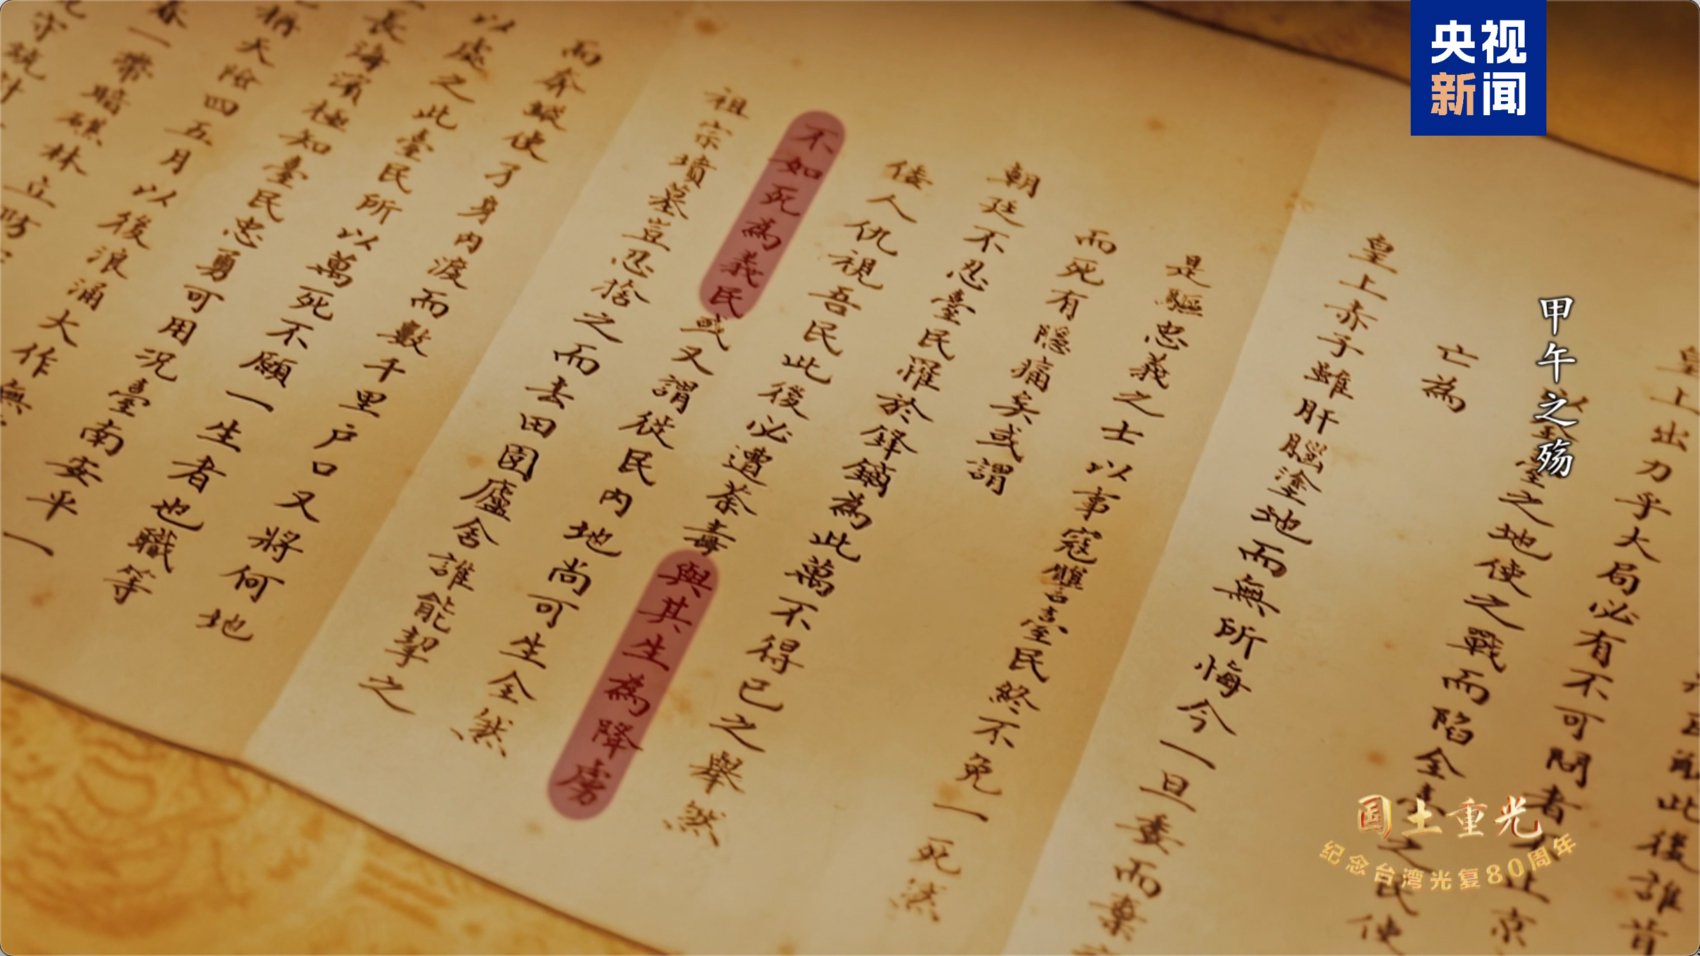 央视
新闻
甲午之殇
此後誰肯
皇上出力乎大局必有不可問者
臺之地使之戰而陷全臺之民使
亡為
皇上赤子雖肝腦塗地而無所悔今一旦委而棄
是驅忠義之士以事寇讎臺民終不免一死然
而死有隱痛矣或謂
朝廷不忍臺民罹於鋒鏑為此萬不得已之舉然
倭人仇視吾民此後必遭荼毒與其生為降虜
不如死為義民或又謂徙民內地尚可生全然
祖宗墳墓豈忍捨之而去田園廬舍誰能挈之
而奔蹴使孑身內渡而數千里戶口又將何地
以處之此臺民所以萬死不願一生者也職等
長海濱極知臺民忠勇可用況臺南安平一
稱天險四五月以後浪涌大作無
春一帶暗礁林立防
守統計
国土重光
纪念台湾光复80周年